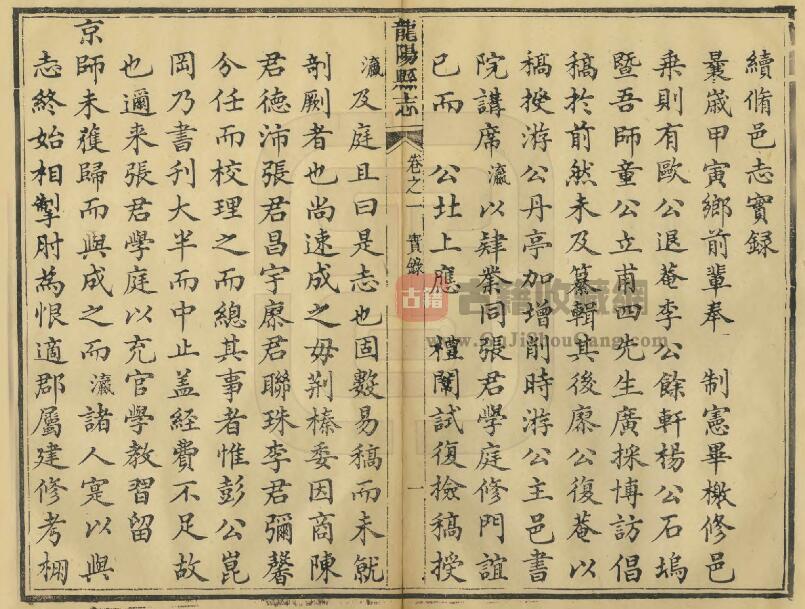 續脩邑志實録
曩嵗甲寅鄉前輩奉 制憲畢檄修邑
乗則有歐公退菴李公餘軒楊公石塢
暨吾師童公立甫四先生廣採博訪倡
稿於前然未及纂輯其後廖公復菴以
稿授游公丹亭加增削時游公主邑書
院講席瀛以肄業同張君學庭修門誼
已而 公北上應 禮闈試復檢稿授
龍陽縣志
卷之一 實錄
一
瀛及庭且曰是志也固數易稿而未就
剞劂者也尚速成之毋荆榛委因商陳
君德沛張君昌宇廖君聯珠李君彌馨
分任而校理之而總其事者惟彭公崑
岡乃書刋大半而中止盖経費不足故
也邇来張君學庭以充官學教習留
京師未獲歸而與成之而瀛諸人寔以與
志終始相掣肘為恨適郡屬建修考棚
古籍
古籍收藏網
www.GuJiShouCang.com